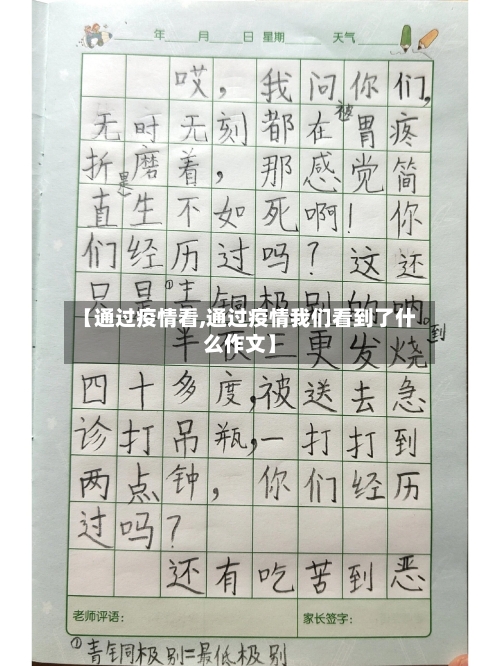 年 月 日 星期 天气
哎，我问你们，
无时无刻都在被胃疼
折磨着，那感觉简
直是生不如死啊！你
们经历过吗？这还
只是①青铜极别的呐。
【通过疫情看,通过疫情我们看到了什
么作文】
半夜三更发烧到
四十多度，被送去急
诊打吊瓶，一打打到
两点钟，你们经历
过吗？
还有吃苦到恶
老师评语： 家长签字：
①青铜极别=最低极别